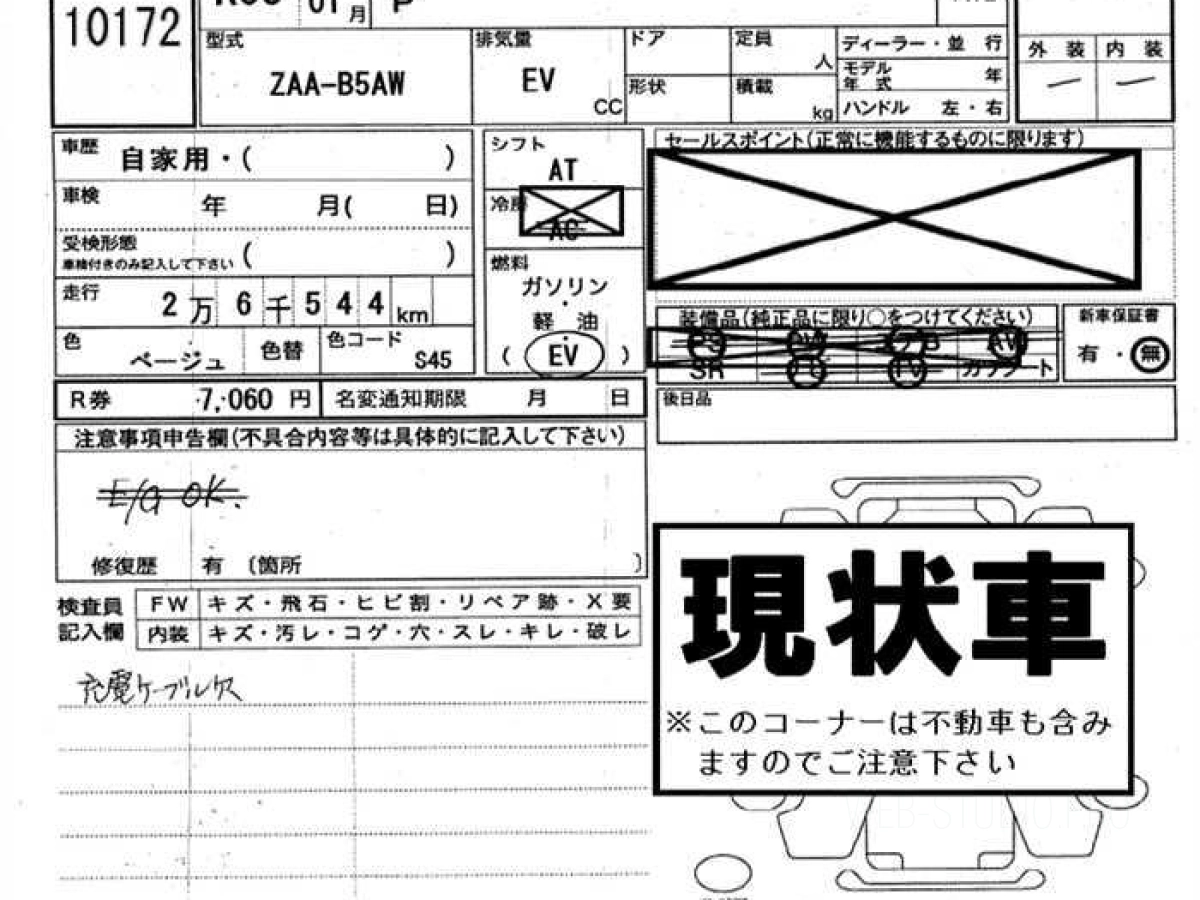 10172
01月 P
型式 ZAA-B5AW
排気量 EV CC
ドア
形状
定員 人
積載 kg
ディーラー・並 行
モデル年 式 年
ハンドル 左・右
外 装 内 装
― ―
車歴 自家用・( )
車検 年 月( 日)
受検形態
車検付きのみ記入して下さい ( )
走行 2万6千544km
色 ベージュ 色替 色コード S45
シフト
AT
冷房
AC
燃料
ガソリン
・
軽 油
( EV )
セールスポイント(正常に機能するものに限ります)
装備品(純正品に限り○をつけてください)
PS PW AB AW
SR TV カワシート
新車保証書
有・無
R券 7,060 円 名変通知期限 月 日
後日品
注意事項申告欄(不具合内容等は具体的に記入して下さい)
E/G OK.
修復歴 有 〔箇所 〕
検査員
記入欄
FW キズ・飛石・ヒビ割・リペア跡・X要
内装 キズ・汚レ・コゲ・穴・スレ・キレ・破レ
充電ケーブル欠
現状車
※このコーナーは不動車も含み
ますのでご注意下さい